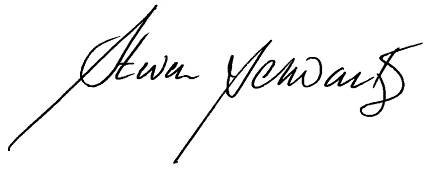 Steven Schwartz